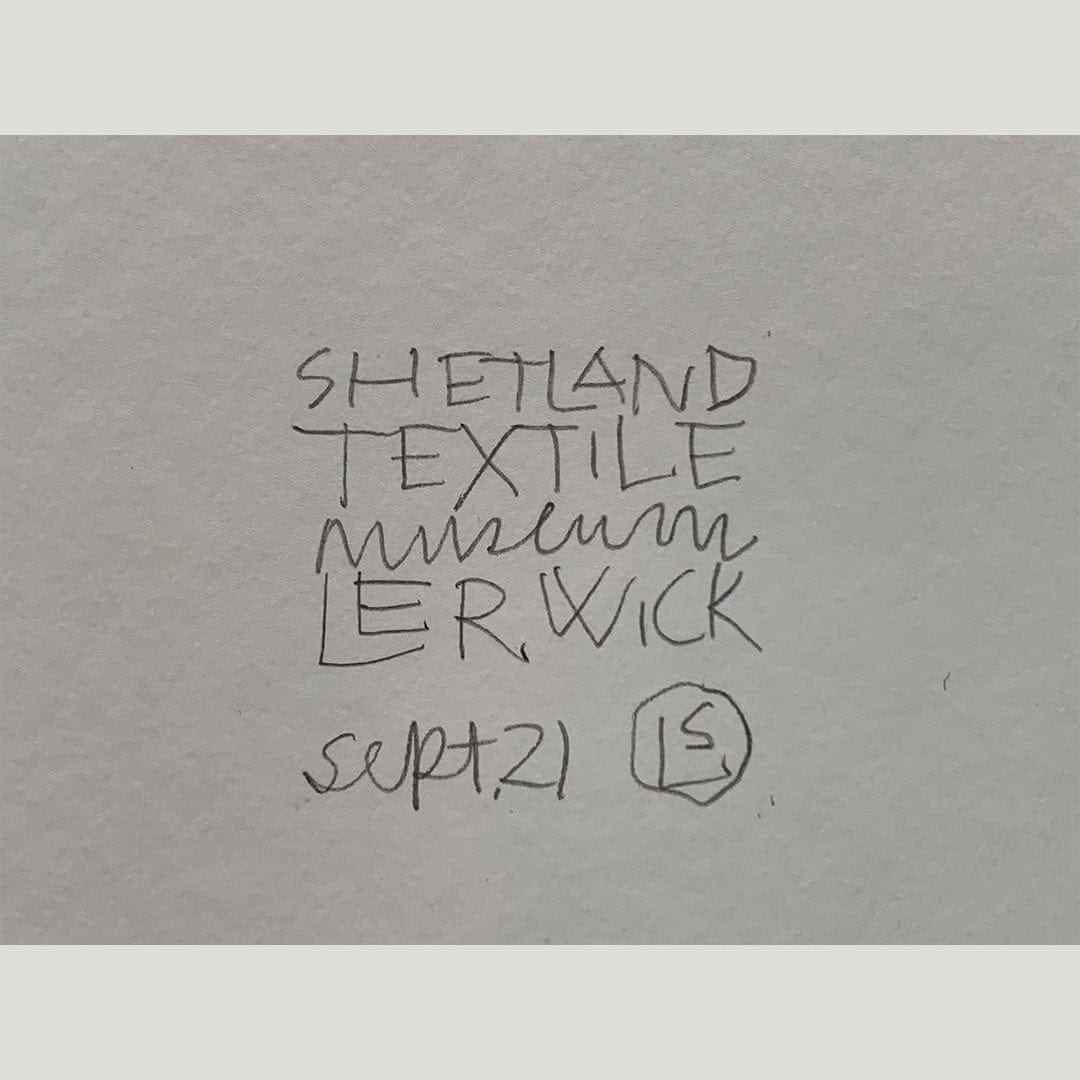 SHETLAND
TEXTILE
museum
LERWICK
sept. 21 LS